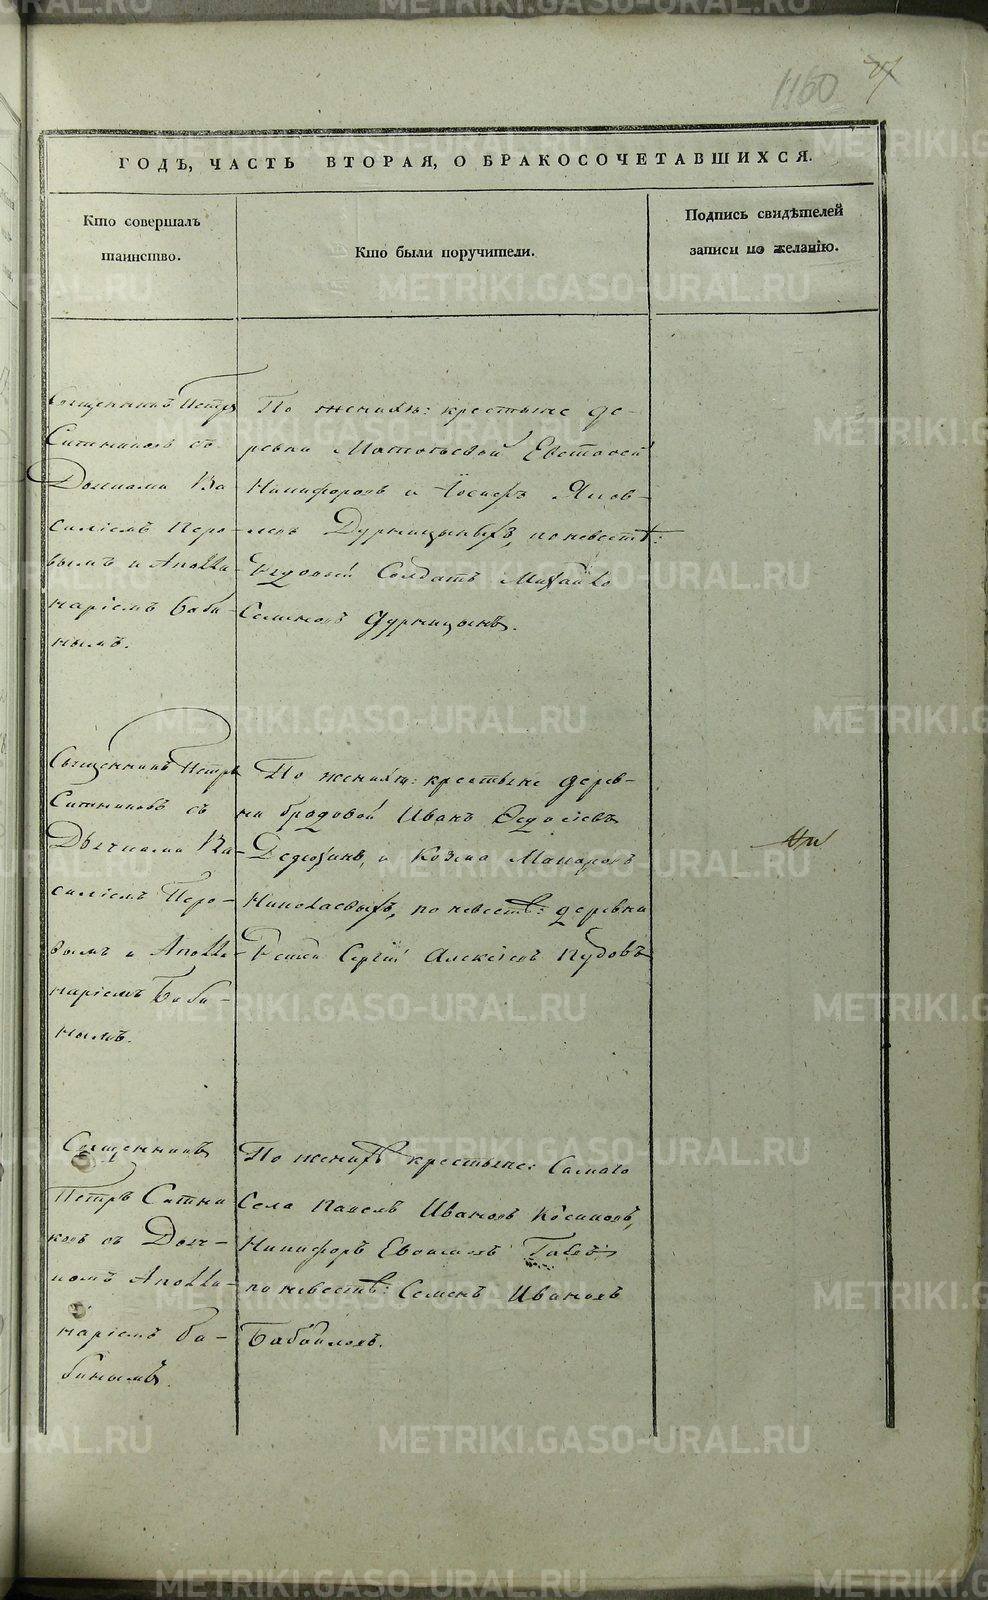 1160
ГОДЪ, ЧАСТЬ ВТОРАЯ, О БРАКОСОЧЕТАВШИХСЯ.
Кто совершалъ
таинство.
Кто были поручители.
Подпись свидѣтелей
записи по желанію.
Священникъ Петръ
Ситниковъ съ
Дьячками Ва-
силіемъ Перо-
вымъ и Аполли-
наріемъ Баби-
нымъ.
По женихѣ: крестьяне де-
ревни Евстафей
Никифоровъ и Іосифъ Яков-
левъ Дурницыны, по невестѣ:
Солдатъ Михайло
Семеновъ Дурницынъ.
Священникъ Петръ
Ситниковъ съ
Дьячками Ва-
силіемъ Перо-
вымъ и Аполли-
наріемъ Баби-
нымъ.
По женихѣ: крестьяне дерев-
ни бродовой Иванъ
Дедюхинъ, и Козма Макаровъ
Николаевыхъ, по невестѣ: деревни
Сергій Алексіевъ
Священникъ
Петръ Ситни-
ковъ съ Дьяч-
комъ Аполли-
наріемъ Ба-
бинымъ.
По женихѣ крестьяне: Самаго
Села Павелъ Ивановъ Косиковъ,
Никифоръ
по невестѣ: Семенъ Ивановъ
METRIKI.GASO-URAL.RU